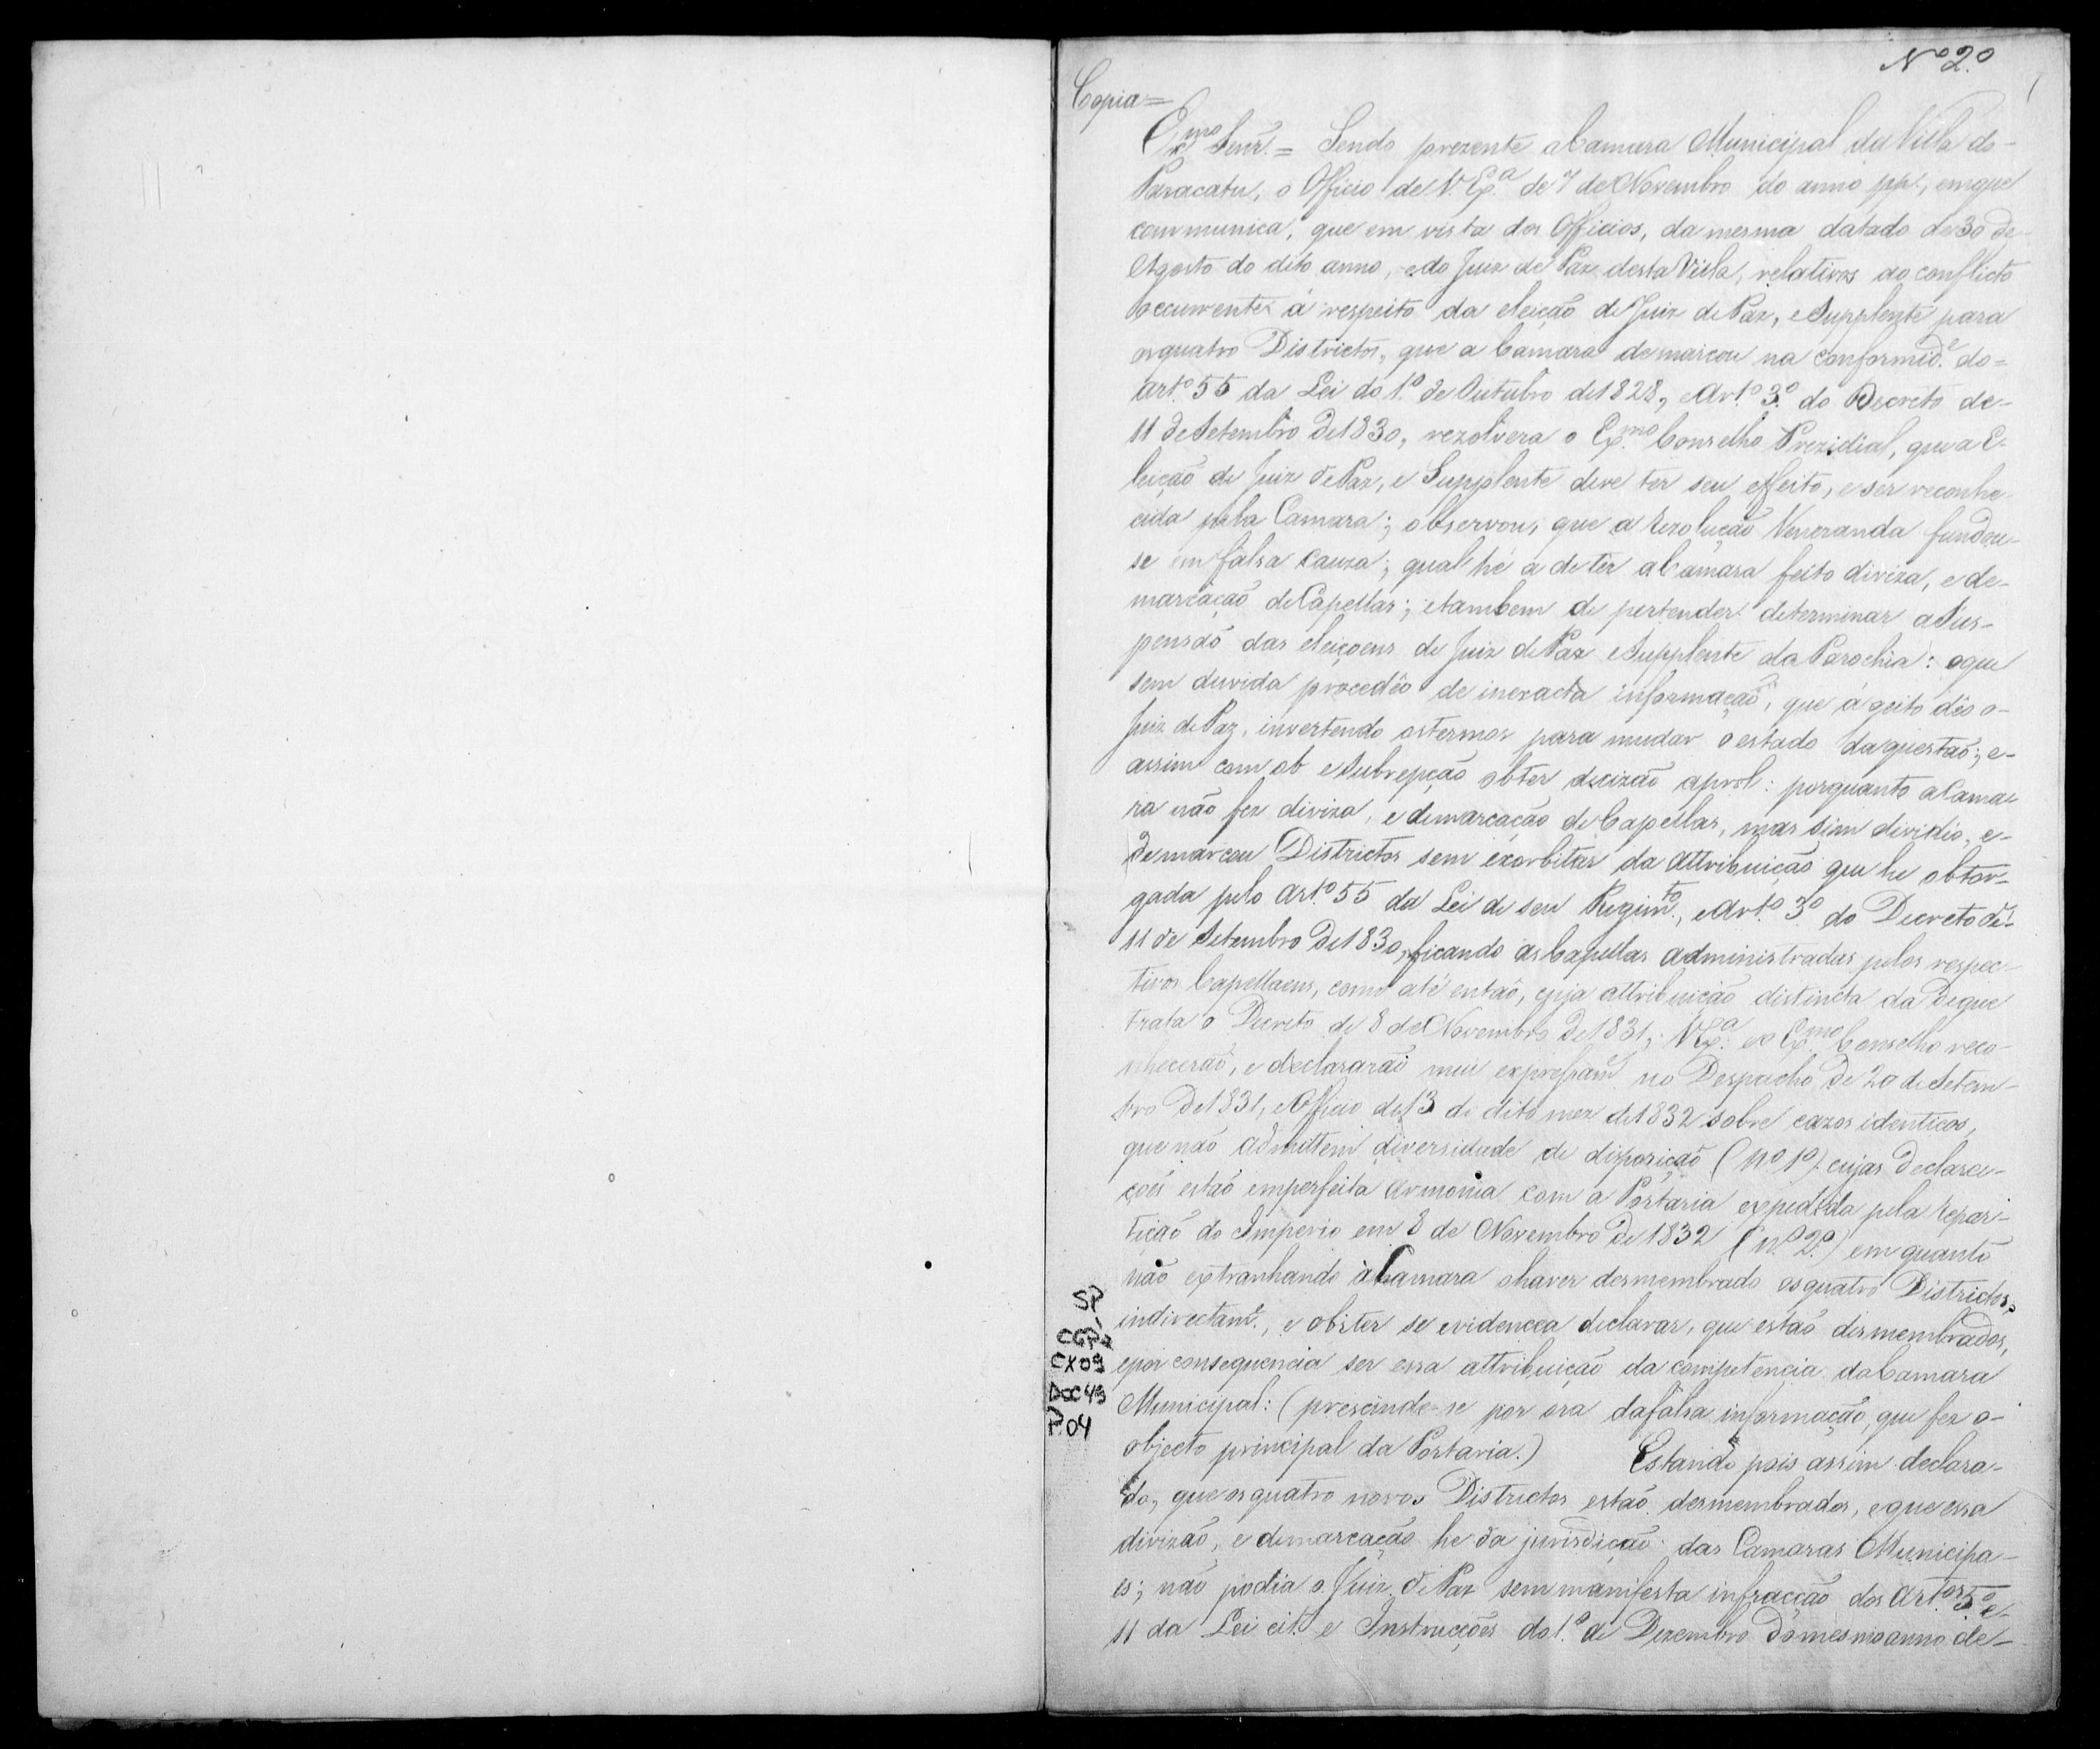 Nº 2º
Copia =
Exmo Senr. = Sendo prezente a Camara Municipal da Villa do-
Paracatu, o Officio de V. Exª de 7 de Novembro do anno pp., em que
communica, que em vista dos Officios, da mesma datado de 30 de
Agosto do dito anno, e do Juiz de Paz desta Villa, relativos ao conflicto
occurrente á respeito da eleição de Juiz de Paz, e Supplente para
os quatro Districtos, que a Camara demarcou na conformidᵉ do=
artº 55 da Lei do 1º de Outubro de 1828, e Artº 3º do Decreto de-
11 de Setembro de 1830, rezolvera o Exmo Conselho Prezidial, que a E-
leição de Juiz de Paz, e Supplente deve ter seu effeito, e ser reconhe-
cida pela Camara; observou, que a Rezolução Veneranda fundou-
se em falsa cauza; qual hé a de ter a Camara feito diviza, e de-
marcação de Capellas; e tambem de pertender determinar a Sus-
pensão das eleiçoens de Juiz de Paz e Supplente da Parochia: o que
sem duvida procedêo de inexacta informação, que á geito dêo o-
Juiz de Paz, invertendo os termos para mudar o estado da questão; e-
assim com ob e Subrepção obter decizão a prol: porquanto a Cama-
ra não fez diviza, e demarcação de Capellas, mas sim dividio, e-
demarcou Districtos sem exorbitar da Attribuição que he obtor-
gada pelo Artº 55 da Lei de seu Regimto, e Artº 3º do Decreto de-
11 de Setembro de 1830, ficando as Capellas administradas pelos respec-
tivos Capellaens, como até então, cuja attribuição distincta da de que
trata o Decreto de 8 de Novembro de 1831; V. Exª e o Exmo Conselho reco-
nhecerão, e declararão mui expressamᵉ no Despacho de 20 de Setem-
bro de 1831, e Officio de 13 de dito mez de 1832 sobre cazos identicos,
que não admittem diversidade de disposição (Nº 1º) cujas declara-
ções estão em perfeita armonia com a Portaria expedida pela Repar-
tição do Imperio em 8 de Novembro de 1832 (nº 2º) em quanto
não extranhando á Camara o haver desmembrado os quatro Districtos,
indirectamᵉ, e obiter se evidencea declarar, que estão desmembrados,
e por consequencia ser essa attribuição da competencia da Camara
Municipal: (prescinde-se por ora da falsa informação, que fez o-
objecto principal da Portaria.) Estando pois assim declara-
do, que os quatro novos Districtos estão desmembrados, e que essa
divizão, e demarcação he da jurisdicção das Camaras Municipa-
es; não podia o Juiz de Paz sem manifesta infracção dos Artos 5º e-
11 da Lei cit. e Instrucções do 1º de Dezembro do mesmo anno de-
SP
CGP2
CX09
DOC 43
P.04